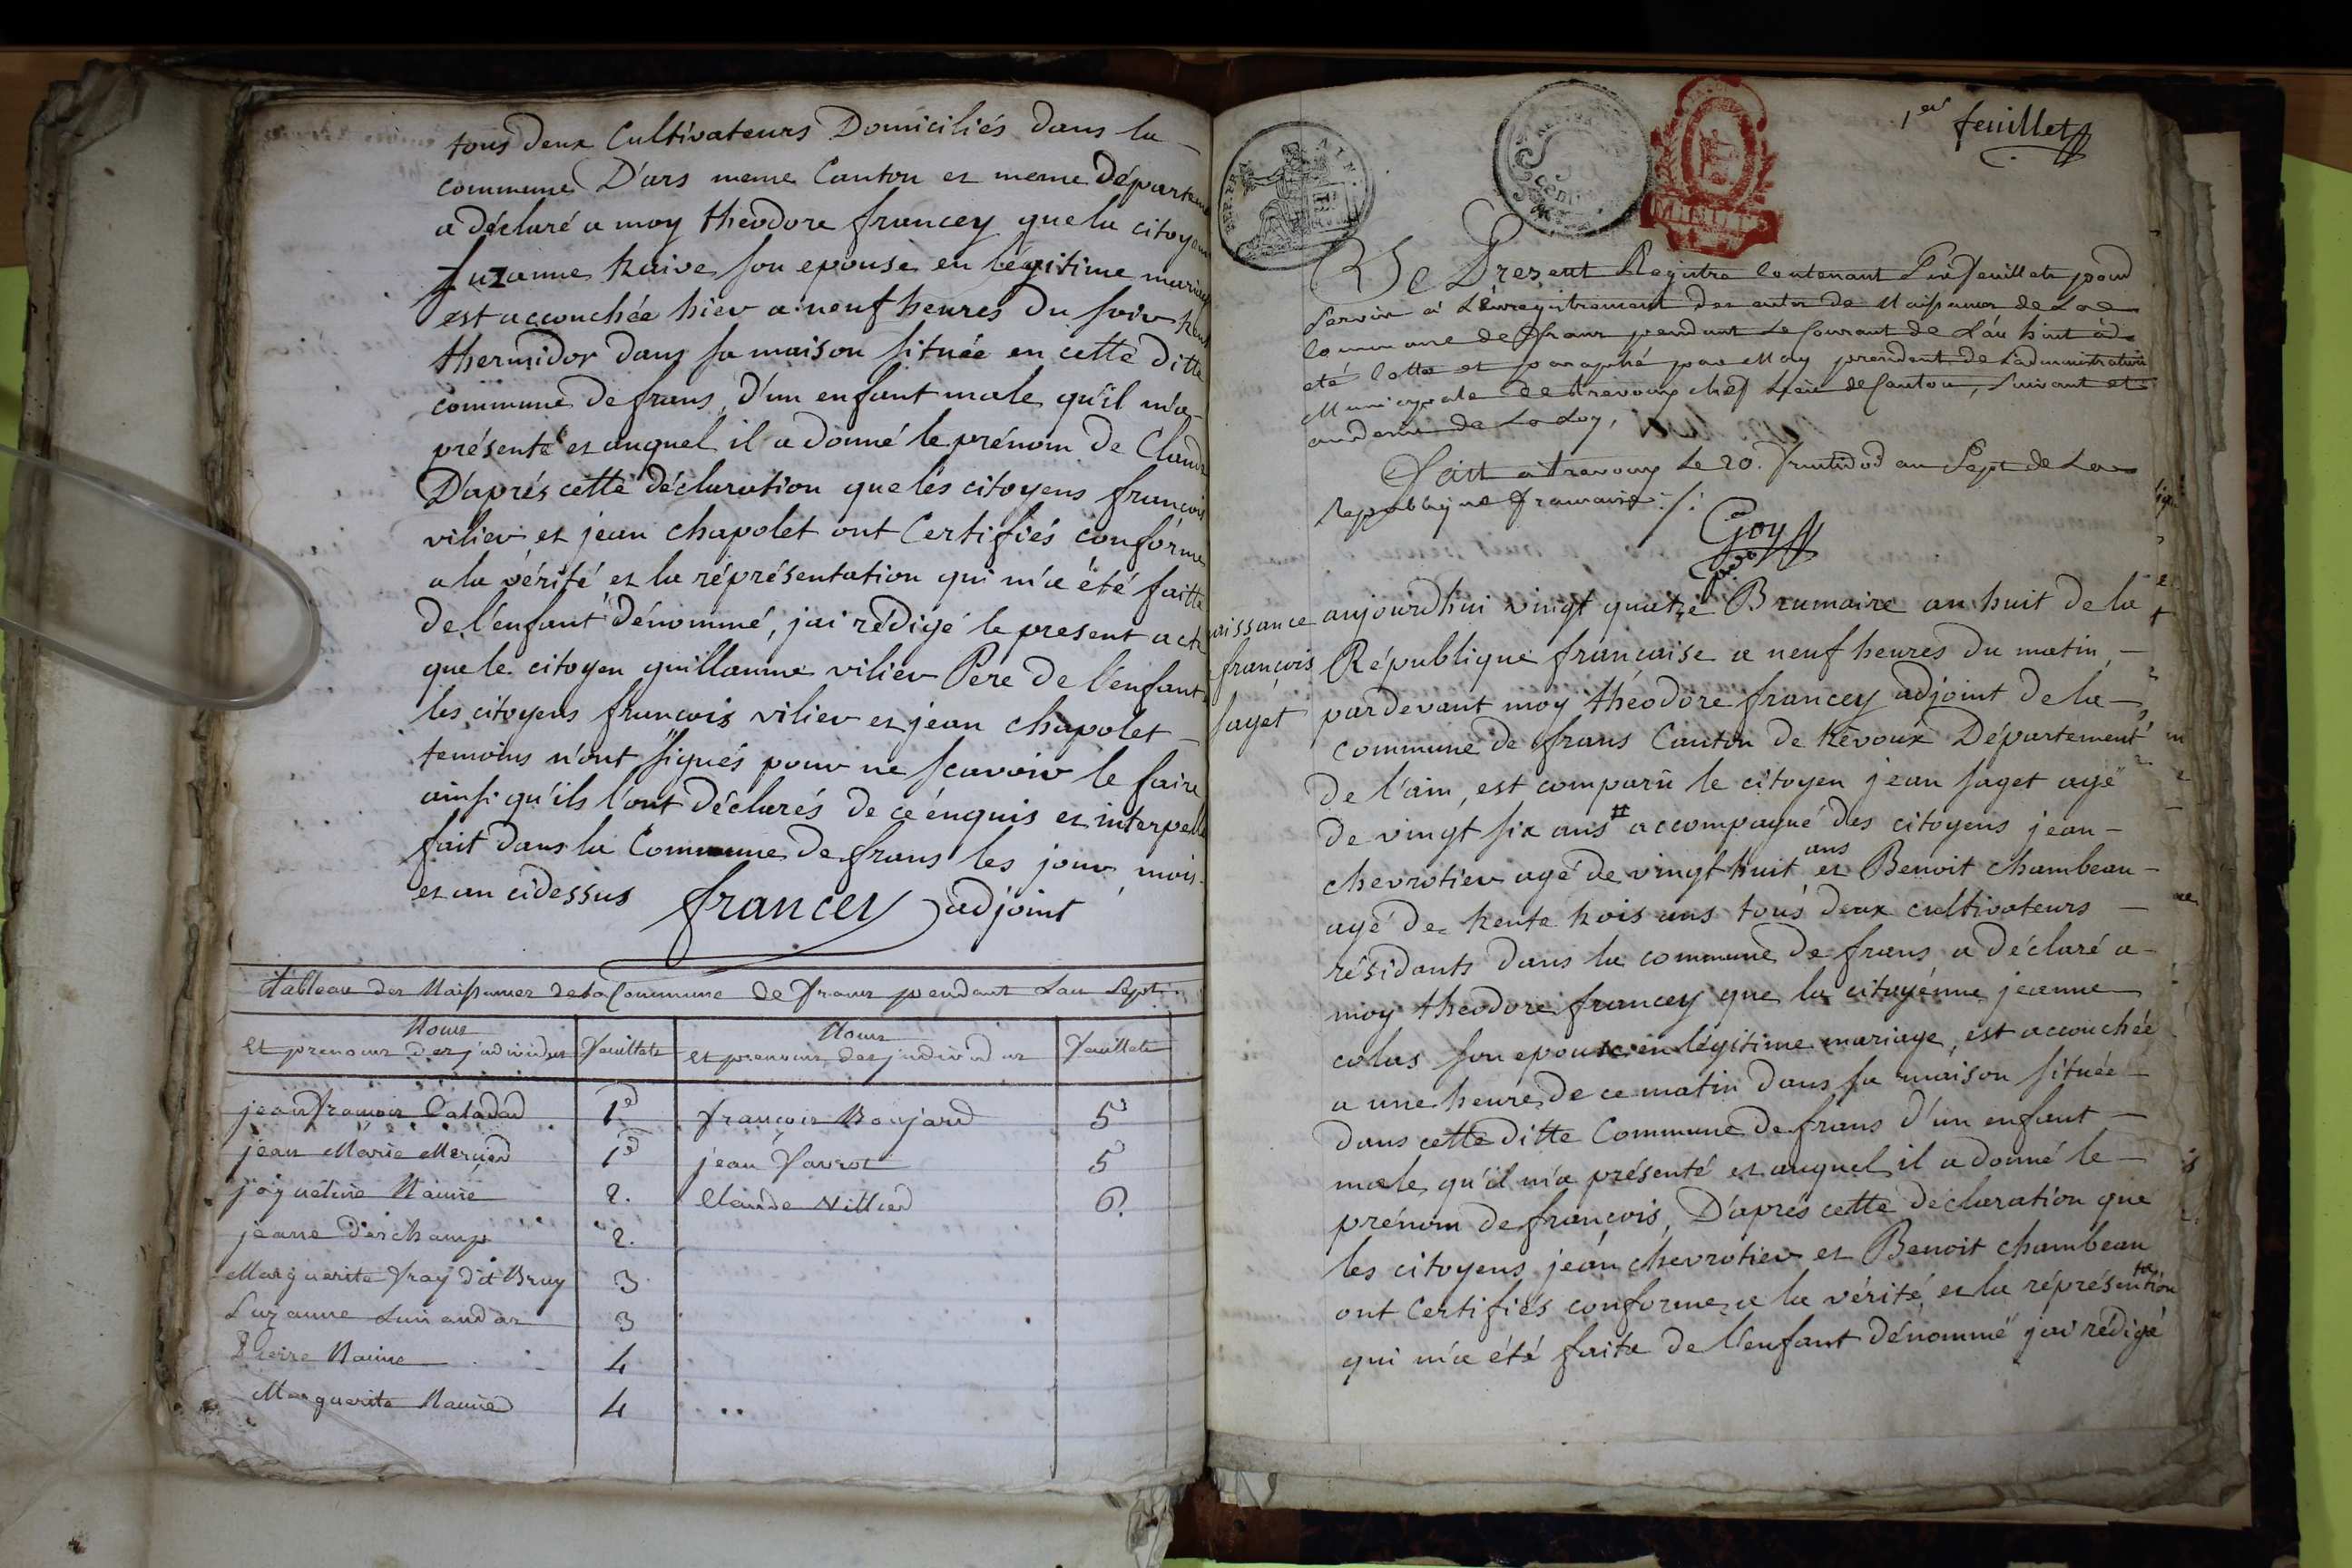 tous deux Cultivateurs Domiciliés dans la
commune D'ars meme Canton et meme départeme
a déclaré a moy théodore francey que la citoyen
suzanne traive son epouse en légitime mariag
est accouchée hier a neuf heures du soir
thermidor dans sa maison située en cette ditte
commune de frans, d'un enfant male qu'il m'a
présenté et auquel il a donné le prénom de Claude
D'aprés cette déclaration que les citoyens francois
vilier et jean chapolet ont Certifiés conforme
a la vérité et la réprésentation qui m'a été faitte
de l'enfant dénommé, j'ai rédigé le present acte
que le citoyen guillaume vilier Pere de l'enfant
les citoyens francois vilier et jean chapolet
temoins n'ont signés pour ne scavoir le faire
ainsi qu'ils l'ont déclarés de ce énquis et interpellé
fait dans la Commune de frans les jour, mois
et an cidessus francey adjoint
tableau des Naissances de la Commune de frans pendant Lan Sept
Noms et prenoms des jndividus feuillets Noms et prenoms des jndividus feuillets
jean françois 1er françois Boujard 5
jean Marie Mercier 1er jean favrot 5
jaqueline Naime 2. Claude Villier 6.
jeanne deschamp 2.
Marguerite fray dit Bruy 3
Suzanne 3
Pierre Naime 4
Marguerite Naime 4
1er feuillet
Le Present Registre Contenant Six feuillets pour
Servir à L'enregistrement des actes de Naissances de La
Commune de frans pendant Le Courant de L'an huit à
été Cotté et paraphé par Moy president de L'administration
Municipale de trevoux chef Lieu de Canton, Suivant et
au desir de La Loy,
Fait a trevoux Le 20. fructidor an Sept de La
Republique francaise ./.
Goy
naissance
françois
saget
aujourdhui vingt quatre Brumaire an huit de la
République française a neuf heures du matin,
pardevant moy théodore francey adjoint de la
commune de frans Canton de trévoux Département
de l'ain, est comparû le citoyen jean saget agé
de vingt six ans # accompagné des citoyens jean
chevrotier agé de vingt huit ans et Benoit chambeau
agé de trente trois ans tous deux cultivateurs
résidants dans la commune de frans a déclaré a
moy théodore francey que la citoyénne jeanne
colas son epouse en légitime mariage, est accouchée
a une heure de ce matin dans sa maison située
dans cette ditte Commune de frans d'un enfant
male qu'il m'a présenté et auquel il a donné le
prénom de françois, D'aprés cette déclaration que
les citoyens jean chevrotier et Benoit chambeau
ont Certifiés conforme a la vérité et la réprésentation
qui m'a été faite de l'enfant dénommé j'ai rédigé